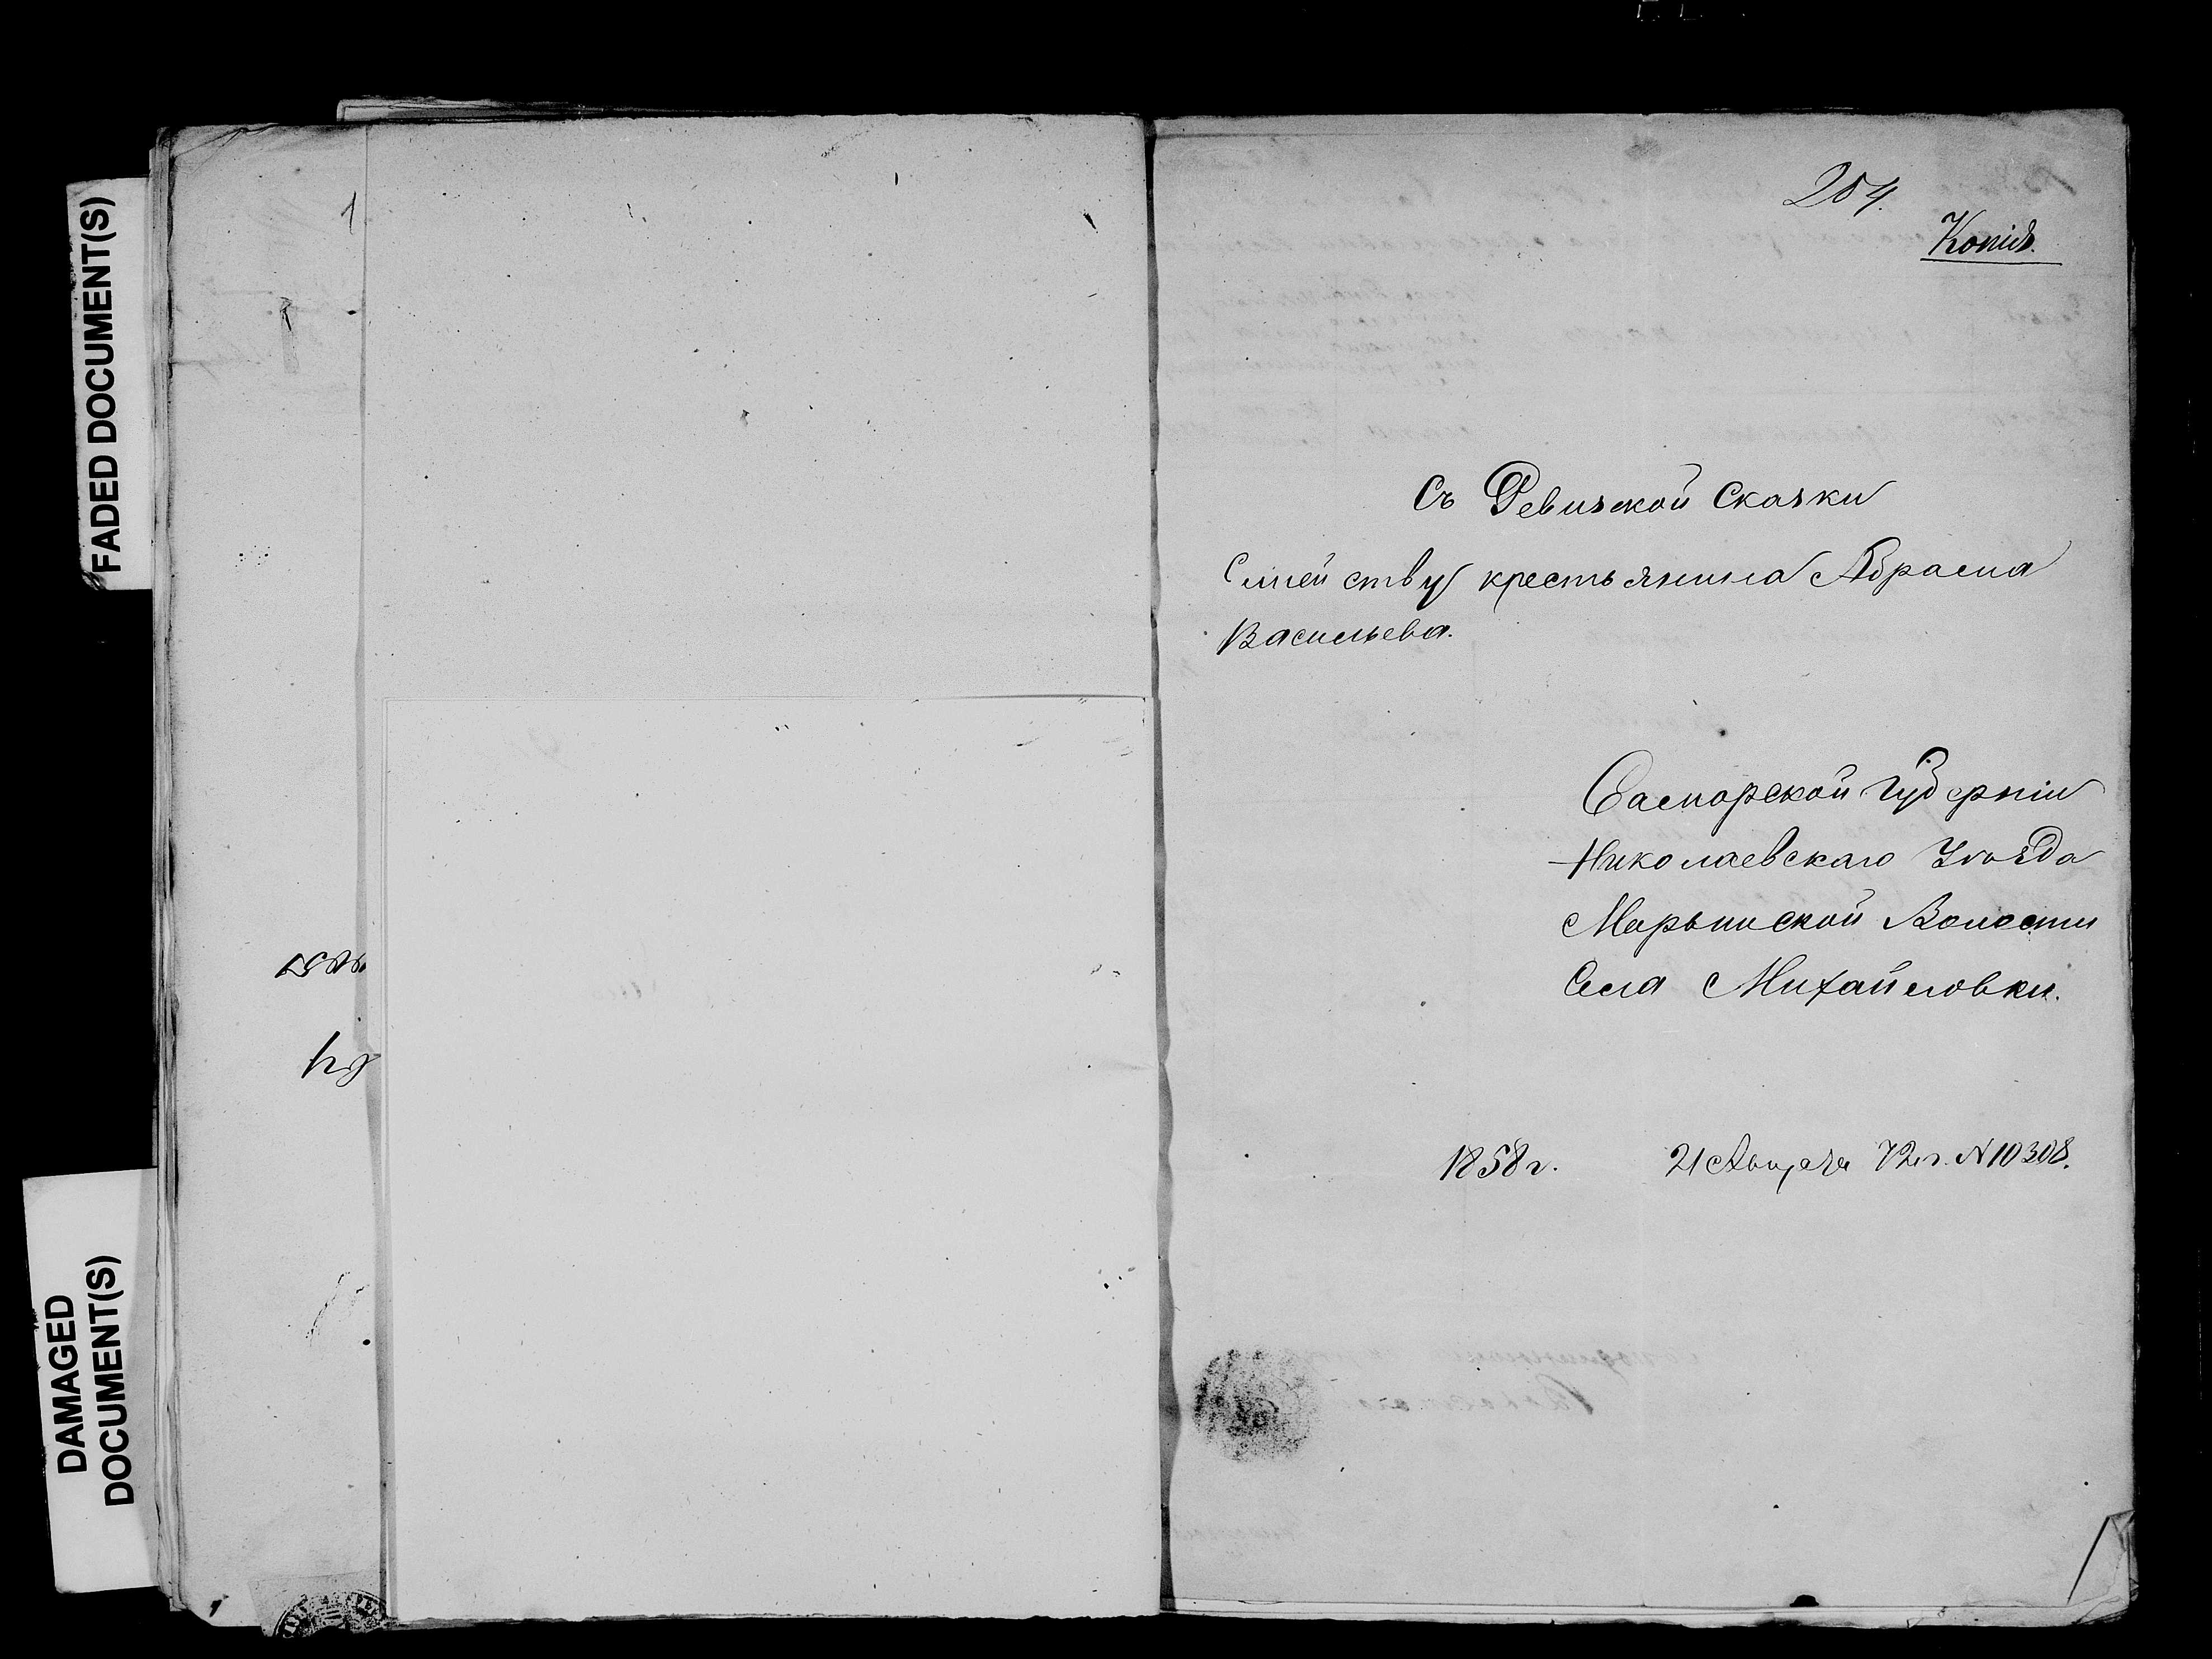 FADED DOCUMENT(S)
DAMAGED
DOCUMENT(S)
204.
Копія.
Съ Ревизской Сказки
Семейству крестьянина Абрама
Васильева.
Самарской Губерніи
Николаевскаго Уѣзда
Марьинской Волости
Села Михайловки.
1858 г. 21 Августа 72 г. № 10308.